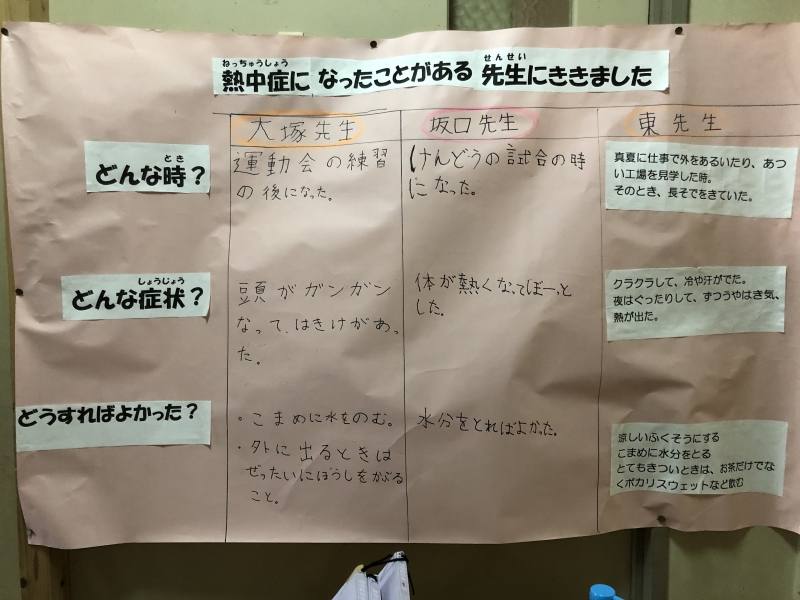 ねっちゅうしょう せんせい
熱中症に なったことがある 先生にききました
大塚先生 坂口先生 東先生
とき
どんな時？
運動会の練習
の後になった。
けんどうの試合の時
になった。
真夏に仕事で外をあるいたり、あつ
い工場を見学した時。
そのとき、長そでをきていた。
しょうじょう
どんな症状？
頭がガンガン
なって、はきけがあっ
た。
体が熱くなってぼーっと
した。
クラクラして、冷や汗がでた。
夜はぐったりして、ずつうやはき気、
熱が出た。
どうすればよかった？
・こまめに水をのむ。
・外に出るときは
ぜったいにぼうしをかぶる
こと。
水分をとればよかった。
涼しいふくそうにする
こまめに水分をとる
とてもきついときは、お茶だけでな
くポカリスウェットなど飲む